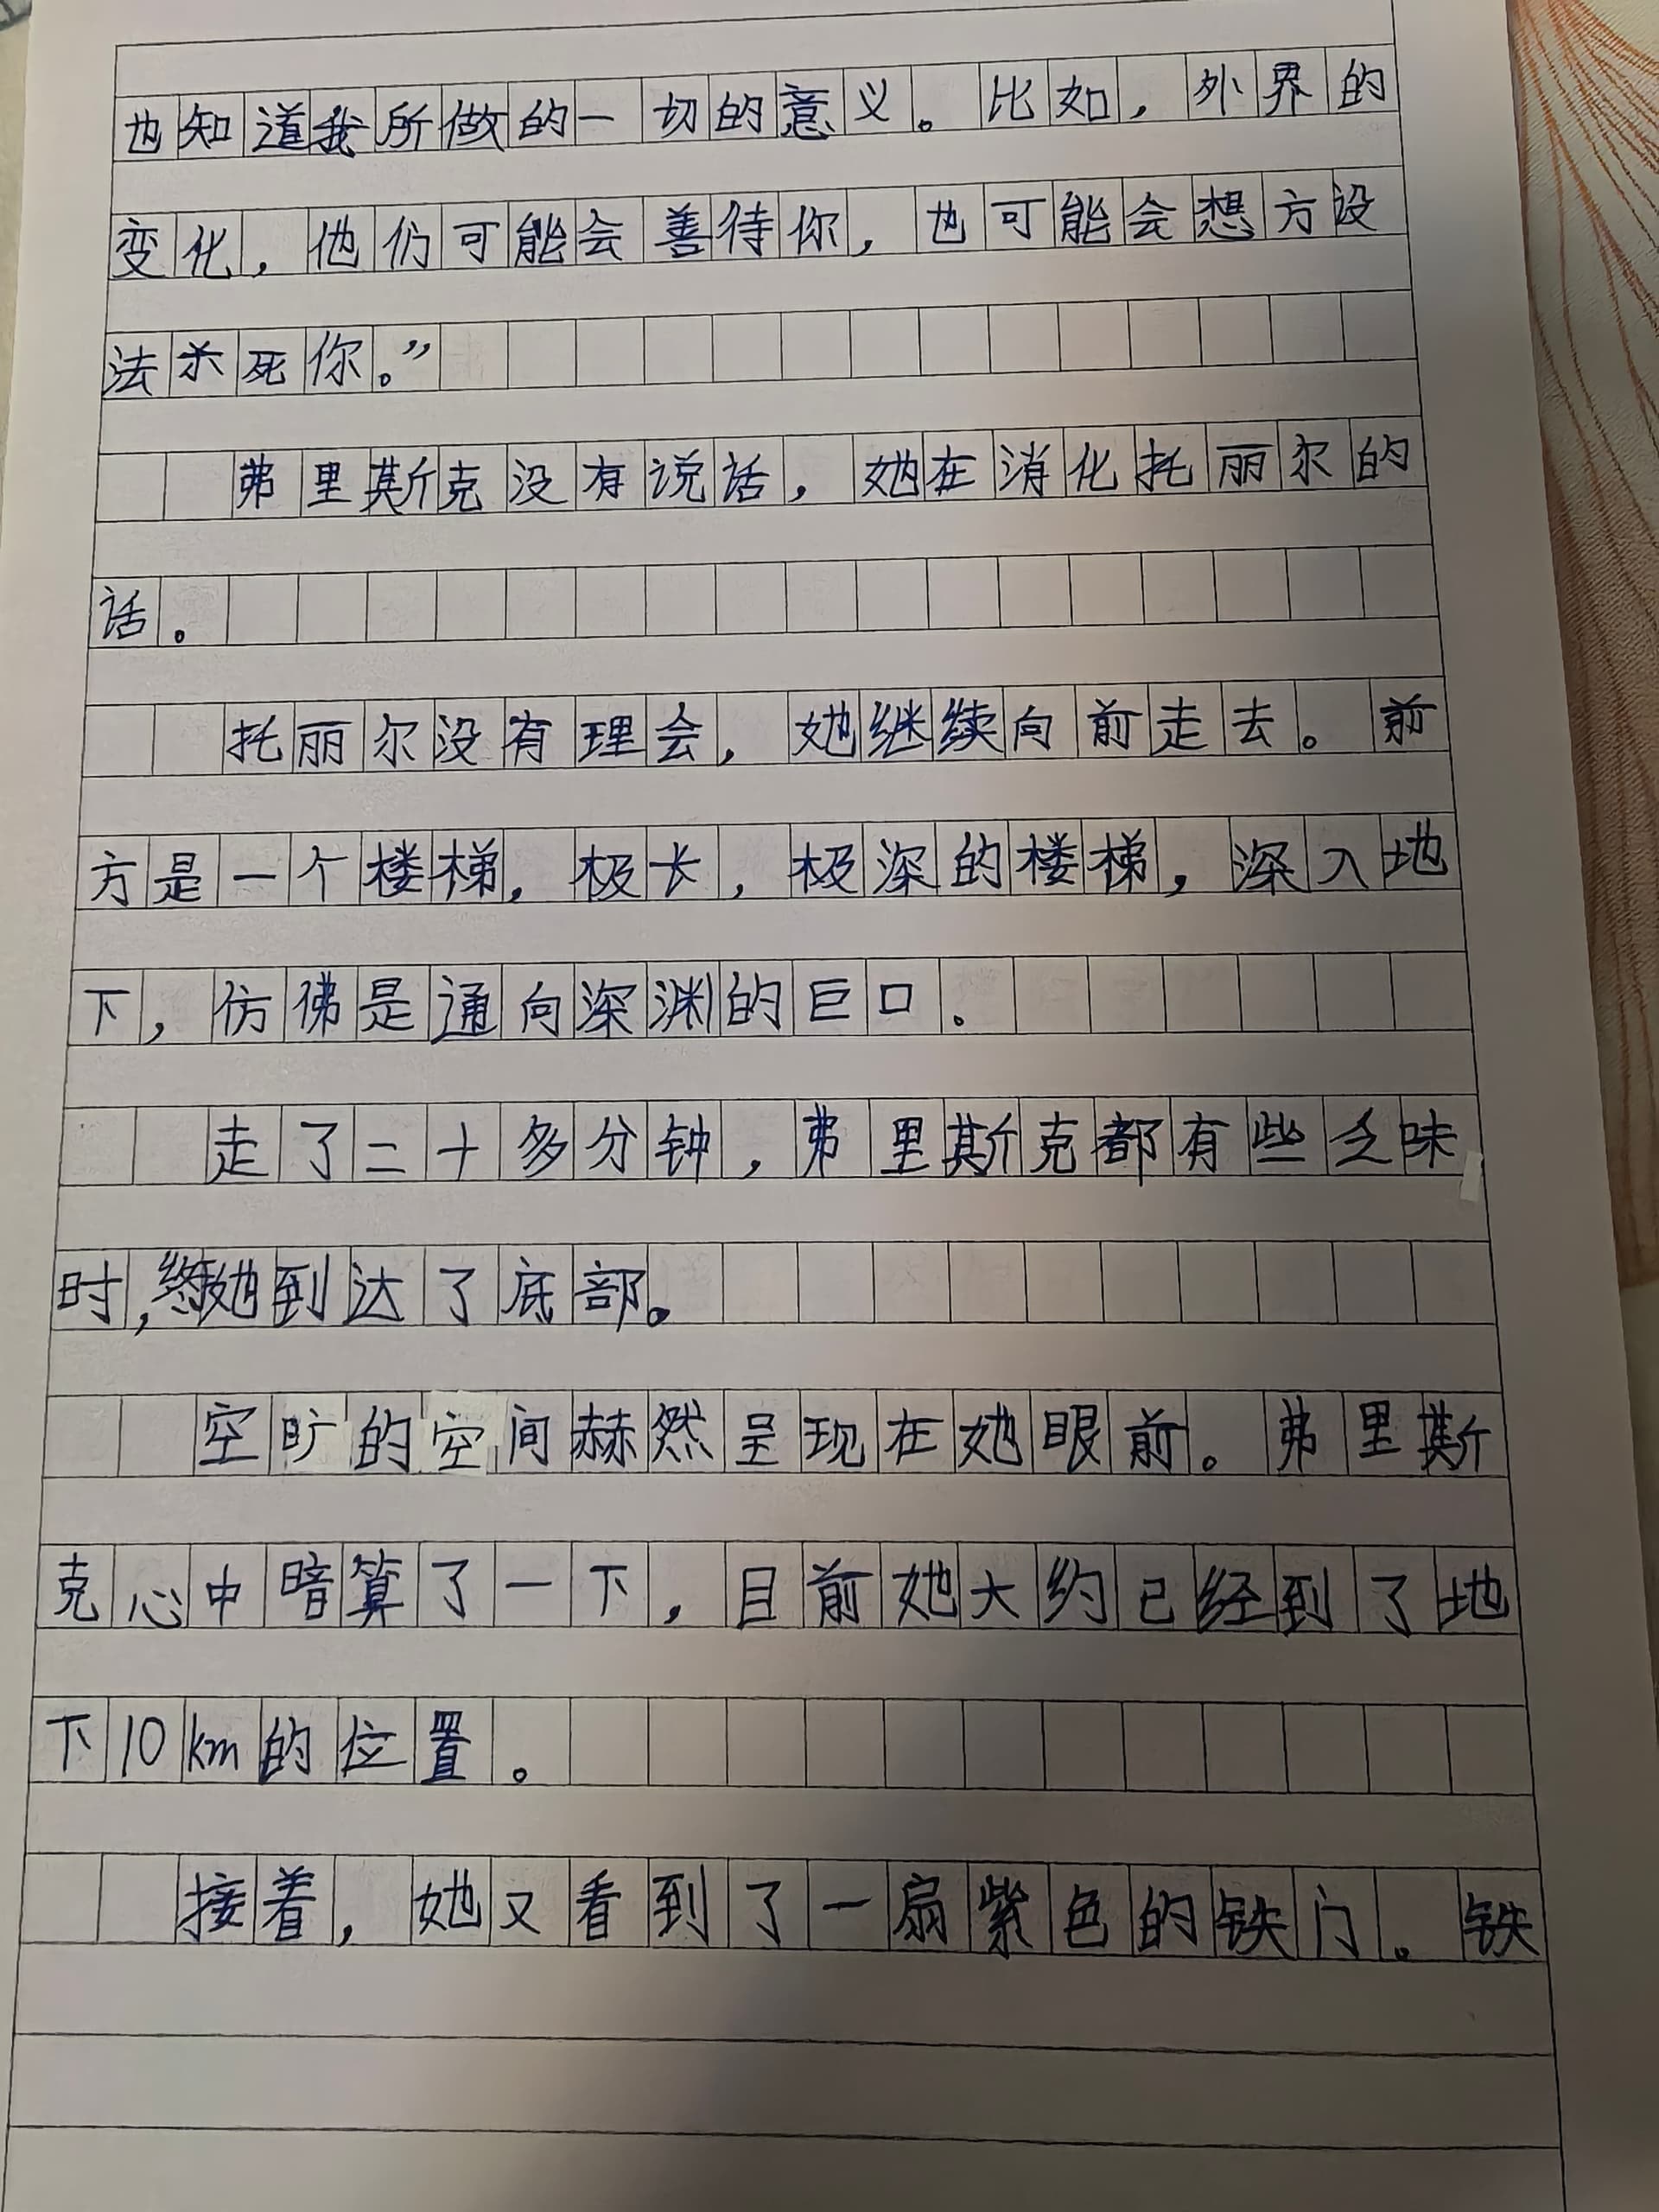 也知道我所做的一切的意义。比如，外界的
变化，他们可能会善待你，也可能会想方设
法杀死你。”
弗里斯克没有说话，她在消化托丽尔的
话。
托丽尔没有理会，她继续向前走去。前
方是一个楼梯，极长，极深的楼梯，深入地
下，仿佛是通向深渊的巨口。
走了二十多分钟，弗里斯克都有些乏味
时，她到达了底部。
空旷的空间赫然呈现在她眼前。弗里斯
克心中暗算了一下，目前她大约已经到了地
下10km的位置。
接着，她又看到了一扇紫色的铁门。铁